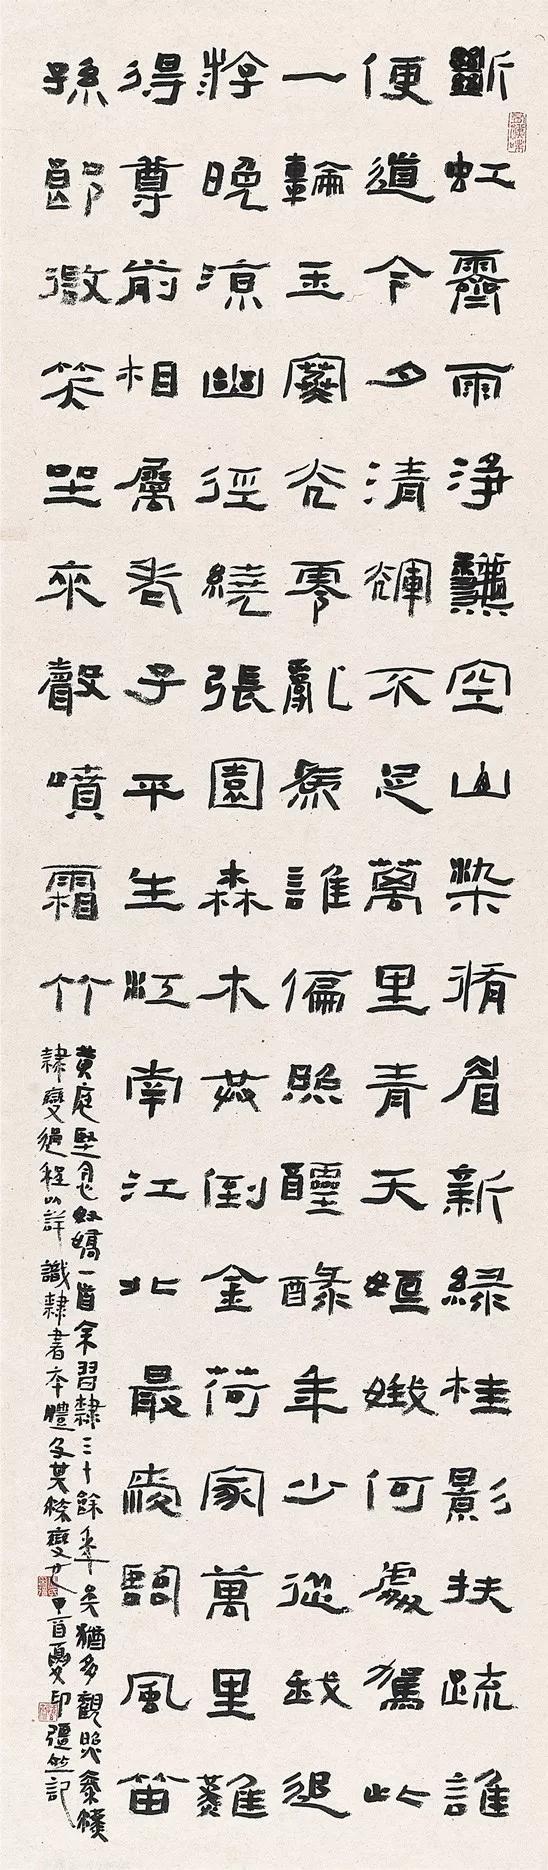 斷虹霽雨淨龝空山染脩眉新綠桂影扶疏誰
便道今夕清輝不足萬里青天姮娥何處駕此
一輪玉寒光零亂為誰偏照醽醁年少從我追
游晚涼幽徑繞張園森木共倒金荷家萬里難
得尊前相屬老子平生江南江北最愛臨風笛
孫郎微笑坐來聲噴霜竹
黃庭堅念奴嬌一首余習隸三十餘年矣猶多觀照秦漢
隸變過程以詳識隸書本體及其餘變也甲首夏印彊竺記